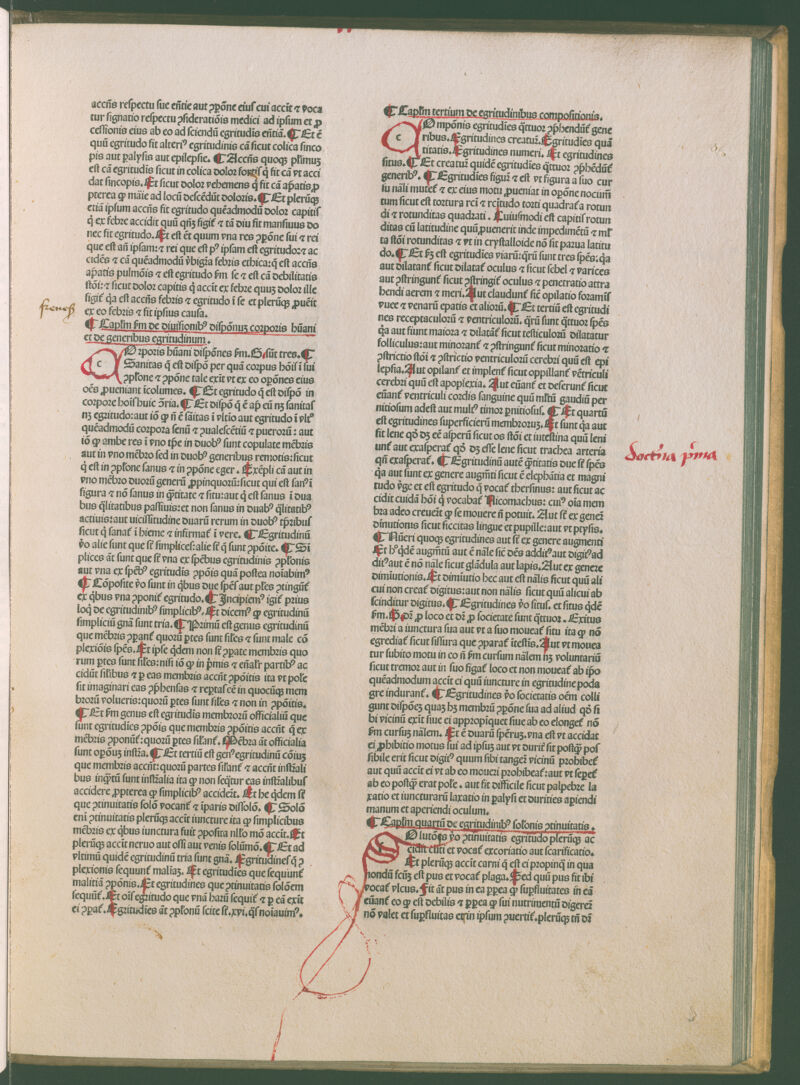 accñs respectu sue eñtie aut ꝓpōne eius cui accīt ⁊ voca
tur signatio respectu ꝯsideratiōis medici ad ipsum et ꝓ
cessionis eius ab eo ad sciendū egritudīs eñtiā. ¶ Et ē
quū egritudo fit alteri⁹ egritudinis cā sicut colica sinco
pis aut palysis aut epilepsie. ¶ Accñs quoqꝫ plimuꝫ
est cā egritudīs sicut in colica dolor fortis q̄ fit cā vt acci
dat sincopis. Et sicut dolor vehemens q̄ fit cā aꝑatis ꝓ
pterea ꝙ māie ad locū descēdūt doloris. ¶ Et plerūqꝫ
etiā ipsum accñs fit egritudo quēadmodū dolor capitis
q̄ ex febre accidit quū qñqꝫ figit̄ ⁊ tā diu fit mansiuus do
nec fit egritudo. Et est ēt quum vna res ꝓpōne sui ⁊ rei
que est añ ipsam: ⁊ rei que est p⁹ ipsam est egritudo: ⁊ ac
cidēs ⁊ cā quēadmodū v̄bigr̄a febris ethica: q̄ est accñs
aꝑatis pulmōis ⁊ est egritudo ẜm se ⁊ est cā debilitatis
stōi: ⁊ sicut dolor capitis q̄ accīt ex febre quuꝫ dolor ille
figit̄ q̄a est accñs febris ⁊ egritudo ī se et plerūqꝫ ꝓuēit
ex eo febris ⁊ fit ipsius causa.
freneſ
¶ Caplm ẜm de diuisionib⁹ dispōnuꝫ corporis hūani
et de generibus egritudinum.
c Orporis hūani dispōnes ẜm. G. sūt tres. ¶
Sanitas q̄ est dispō per quā corpus hoīs ī sui
ꝯplone ⁊ ꝯpōne tale exīt vt ex eo opōnes eius
oēs ꝓueniant icolumes. ¶ Et egritudo q̄ est dispō in
corpore hoīs huic ꝯ̄ria. ¶ Et dispō q̄ ē ap̄ eū nꝫ sanitas
nꝫ egritudo: aut iō ꝙ ñ ē sāitas ī vltio aut egritudo ī vlt⁹
quēadmodū corpora senū ⁊ ꝯualescētiū ⁊ pueroꝝ: aut
iō ꝙ ambe res ī vno tp̄e in duob⁹ sunt copulate mēbris
aut in vno mēbro sed in duob⁹ generibus remotis: sicut
q̄ est in ꝯplone sanus ⁊ in ꝯpōne eger. Exēpli cā aut in
vno mēbro duorū generū ꝓpinquorū: sicut qui est san⁹ ī
figura ⁊ nō sanus in q̄titate ⁊ situ: aut q̄ est sanus ī dua
bus q̄litatibus passiuis: et non sanus in duab⁹ q̄litatib⁹
actiuis: aut uicissitudine duarū rerum in duob⁹ tp̄ribus
sicut q̄ sanat̄ ī hieme ⁊ infirmat̄ ī vere. ¶ Egritudinū
v̄o alie sunt que st̄ simplices: alie st̄ q̄ sunt ꝯpōite. ¶ Si
plices āt sunt que st̄ vna ex spēbus egritudinis ꝯplonis
aut vna ex speb⁹ egritudīs ꝯpōis quā postea noiabim⁹
¶ Cōposite v̄o sunt in q̄bus due spēs aut plēs ꝯtingūt̄
ex q̄bus vna ꝯponit̄ egritudo. ¶ Incipiem⁹ igit̄ prius
loq̄ de egritudinib⁹ simplicib⁹. Et dicem⁹ ꝙ egritudinū
simpliciū gñā sunt tria. ¶ Primū est genus egritudinū
que mēbris ꝯparant̄ quorū ptes sunt siles ⁊ sunt male cō
plexiōis spēs. Et ipse q̄dem non st̄ ꝯpate membris quo
rum ptes sunt siles: nisi iō ꝙ in ṗmis ⁊ eñalr̄ partib⁹ ac
cidūt silibus ⁊ ꝑ eas membris accñt ꝯpōitis ita vt pole
sit imaginari eas ꝯphensas ⁊ reptas eē in quocūqꝫ mem
brorū volueris: quorū ptes sunt siles ⁊ non in ꝯpōitis.
¶ Et ẜm genus est egritudīs membrorū officialiū que
sunt egritudīes ꝯpōis que membris ꝯpōitis accñt q̄ ex
mēbris ꝯponūt̄: quorū ptes silant̄. Mēbra āt officialia
sunt opōnuꝫ instr̄a. ¶ Et tertiū est gen⁹ egritudinū cōiuꝫ
que membris accñt: quorū partes silant̄ ⁊ accñt instrāli
bus inq̄tū sunt instrālia ita ꝙ non seq̄tur eas instrālibus
accidere ꝓpterea ꝙ simplicib⁹ accidēt. Et he q̄dem st̄
que ꝯtinuitatis solō vocant̄ ⁊ īparis dissolō. ¶ Solō
eni ꝯtinuitatis plerūqꝫ accīt iuncture ita ꝙ simplicibus
mēbris ex q̄bus iunctura fuit ꝯposita nllo mō accīt. Et
plerūqꝫ accīt neruo aut ossi aut venis solūmō. ¶ Et ad
vltimū quidē egritudinū tria sunt gnā. Egritudines q̄ ꝯ
plexionis sequunt̄ maliaꝫ. Et egritudīes que sequunt̄
malitiā ꝯpōnis. Et egritudines que ꝯtinuitatis solōem
sequūt̄. Et oīs egritudo que vnā harū sequit̄ ⁊ ꝑ eā exīt
ei ꝯpat̄. Egritudīes āt ꝯplonū scite st̄. xvi. q̄s noiauim⁹.
¶ Caplm tertium de egritudinibus compositionis.
c Ompōnis egritudīes q̄ttuor ꝯphendūt̄ gene
ribus. Egritudines creatiuꝫ. Egritudīes quā
titatis. Egritudines numeri. Et egritudines
situs. ¶ Et creatiuꝫ quidē egritudīes q̄ttuor ꝯphēdūt̄
generib⁹. ¶ Egritudīes figuꝝ ⁊ est vt figura a suo cur
su nāli mutet̄ ⁊ ex eius motu ꝓueniat in opōne nocum̄
tum sicut est tortura rei ⁊ rectitudo torti quadrat̄a rotun
di ⁊ rotunditas quadrati. Cuiusmodi est capitis rotun
ditas cū latitudine quū ꝓuenerit inde impedimētū ⁊ ml̄
ta stōi rotunditas ⁊ vt in crystalloide nō fit parua latitu
do. ¶ Et ẜꝫ est egritudīes viarū: q̄rū sunt tres spēs: q̄a
aut dilatant̄ sicut dilatat̄ oculus ⁊ sicut sebel ⁊ varices
aut ꝯstringunt̄ sicut ꝯstringit̄ oculus ⁊ penetratio attra
hendi aerem ⁊ meri. Aut claudunt̄ sic opilatio foramīs
vuee ⁊ venarū epatis et aliorū. ¶ Et tertiū est egritudi
nes receptaculorū ⁊ ventriculorū. q̄rū sunt q̄ttuor spēs
q̄a aut fiunt maiora ⁊ dilatāt̄ sicut testiculorū dilatatur
folliculus: aut minorant̄ ⁊ ꝯstringunt̄ sicut minoratio ⁊
ꝯstrictio stōi ⁊ ꝯstrictio ventriculorū cerebri quū est epi
lepsia. Aut opilant̄ et implent̄ sicut oppillant̄ vētriculi
cerebri quū est apoplexia. Aut euāat̄ et deserunt̄ sicut
euāant̄ ventriculi cordis sanguine quū mltū gaudiū per
nitiosum adest aut mult⁹ timor pnitiosus. ¶ Et quartū
est egritudines superficierū membrorꝫ. Et sunt q̄a aut
fit lene qd̄ dꝫ eē asperū sicut os stōi et intestina quū leni
unt̄ aut exasperat̄ qd̄ dꝫ esse lene sicut trachea arteria
qñ exasperat̄. ¶ Egritudinū autē q̄titatis due st̄ spēs
q̄a aut sunt ex genere augmēti sicut ē elephātia et magni
tudo v̄ge et est egritudo q̄ vocat̄ thersinus: aut sicut ac
cidit cuidā hōi q̄ vocabat̄ Nicomachus: cui⁹ oīa mem
bra adeo creuerūt ꝙ se mouere ñ potuit. Aut st̄ ex genere
dinutionis sicut siccitas lingue et pupille: aut vt ptysis.
¶ Nūeri quoqꝫ egritudines aut st̄ ex genere augmenti
Et h⁹ q̄dē augmētū aut ē nāle sic dēs addit⁹ aut digit⁹ ad
dit⁹ aut ē nō nāle sicut glādula aut lapis. Aut ex genere
dimiutionis. Et dimiutio hec aut est nālis sicut quū ali
cui non creat̄ digitus: aut non nālis sicut quū alicui ab
scinditur digitus. ¶ Egritudines v̄o situs. et situs q̄dē
ẜm. G. dr̄ ꝓ loco et dr̄ ꝓ societate sunt q̄ttuor. Exitus
mēbri a iunctura sua aut vt a suo moueat̄ situ ita ꝙ nō
egrediat̄ sicut fissura que ꝯparat̄ itestīs. Aut vt mouea
tur subito motu in eo ñ ẜm cursum nālem nꝫ voluntariū
sicut tremor aut in suo figat̄ loco et non moueat̄ ab ipso
quēadmodum accīt ei quū iuncture in egritudine poda
gre indurant̄. ¶ Egritudines v̄o societatis oēm colli
gunt dispōes quaꝫ hꝫ membrū ꝯpōne sua ad aliud qd̄ si
bi vicinū exīt siue ei appropiquet siue ab eo elonget̄ nō
ẜm cursuꝫ nālem. ¶ Et ē duarū sperū. vna est vt accidat
ei ꝓhibitio motus sui ad ipsuꝫ aut vt durit̄ sit postq̄ꝫ pos
sibile erit sicut digit⁹ quum sibi tanget̄ vicinū prohibet̄
aut quū accīt ei vt ab eo mouerī prohibeat̄: aut vt sepet̄
ab eo postq̄ꝫ erat pole. aut fit difficile sicut palpebre la
xatio et iuncturarū laxatio in palysi et durities apiendi
manum et aperiendi oculum.
¶ Caplm quartū de egritudinib⁹ solonis ꝯtinuitatis.
Olutōes v̄o ꝯtinuatis egritudo plerūqꝫ ac
cidit cuti et vocat̄ excoriatio aut scarificatio.
Et plerūqꝫ accīt carni q̄ est ei propinq̄ in qua
nondū scissꝫ est pus et vocat̄ plaga. Sed quū pus sit ibi
vocat̄ vlcus. Fit āt pus in ea ꝓpea ꝙ supfluitates in eā
euāant̄ eo ꝙ est debilis ⁊ ꝓpea ꝙ sui nutrimentū digerere
nō valet et supfluitas etiā in ipsum ꝯuertit̄. plerūqꝫ tñ dr̄
doctrīa p̄ma